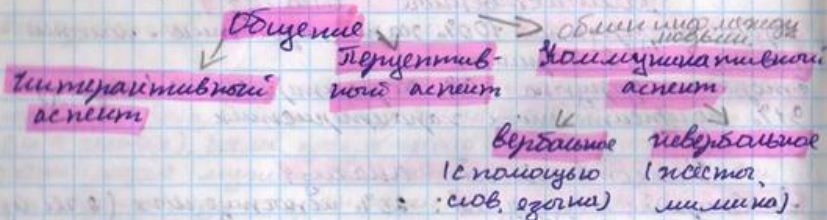 Общение
обмен инф. между
людьми
Интерактивный
аспект
Перцептив-
ный аспект
Коммуникативный
аспект
вербальное
(с помощью
слов, языка)
невербальное
(жесты,
мимика).